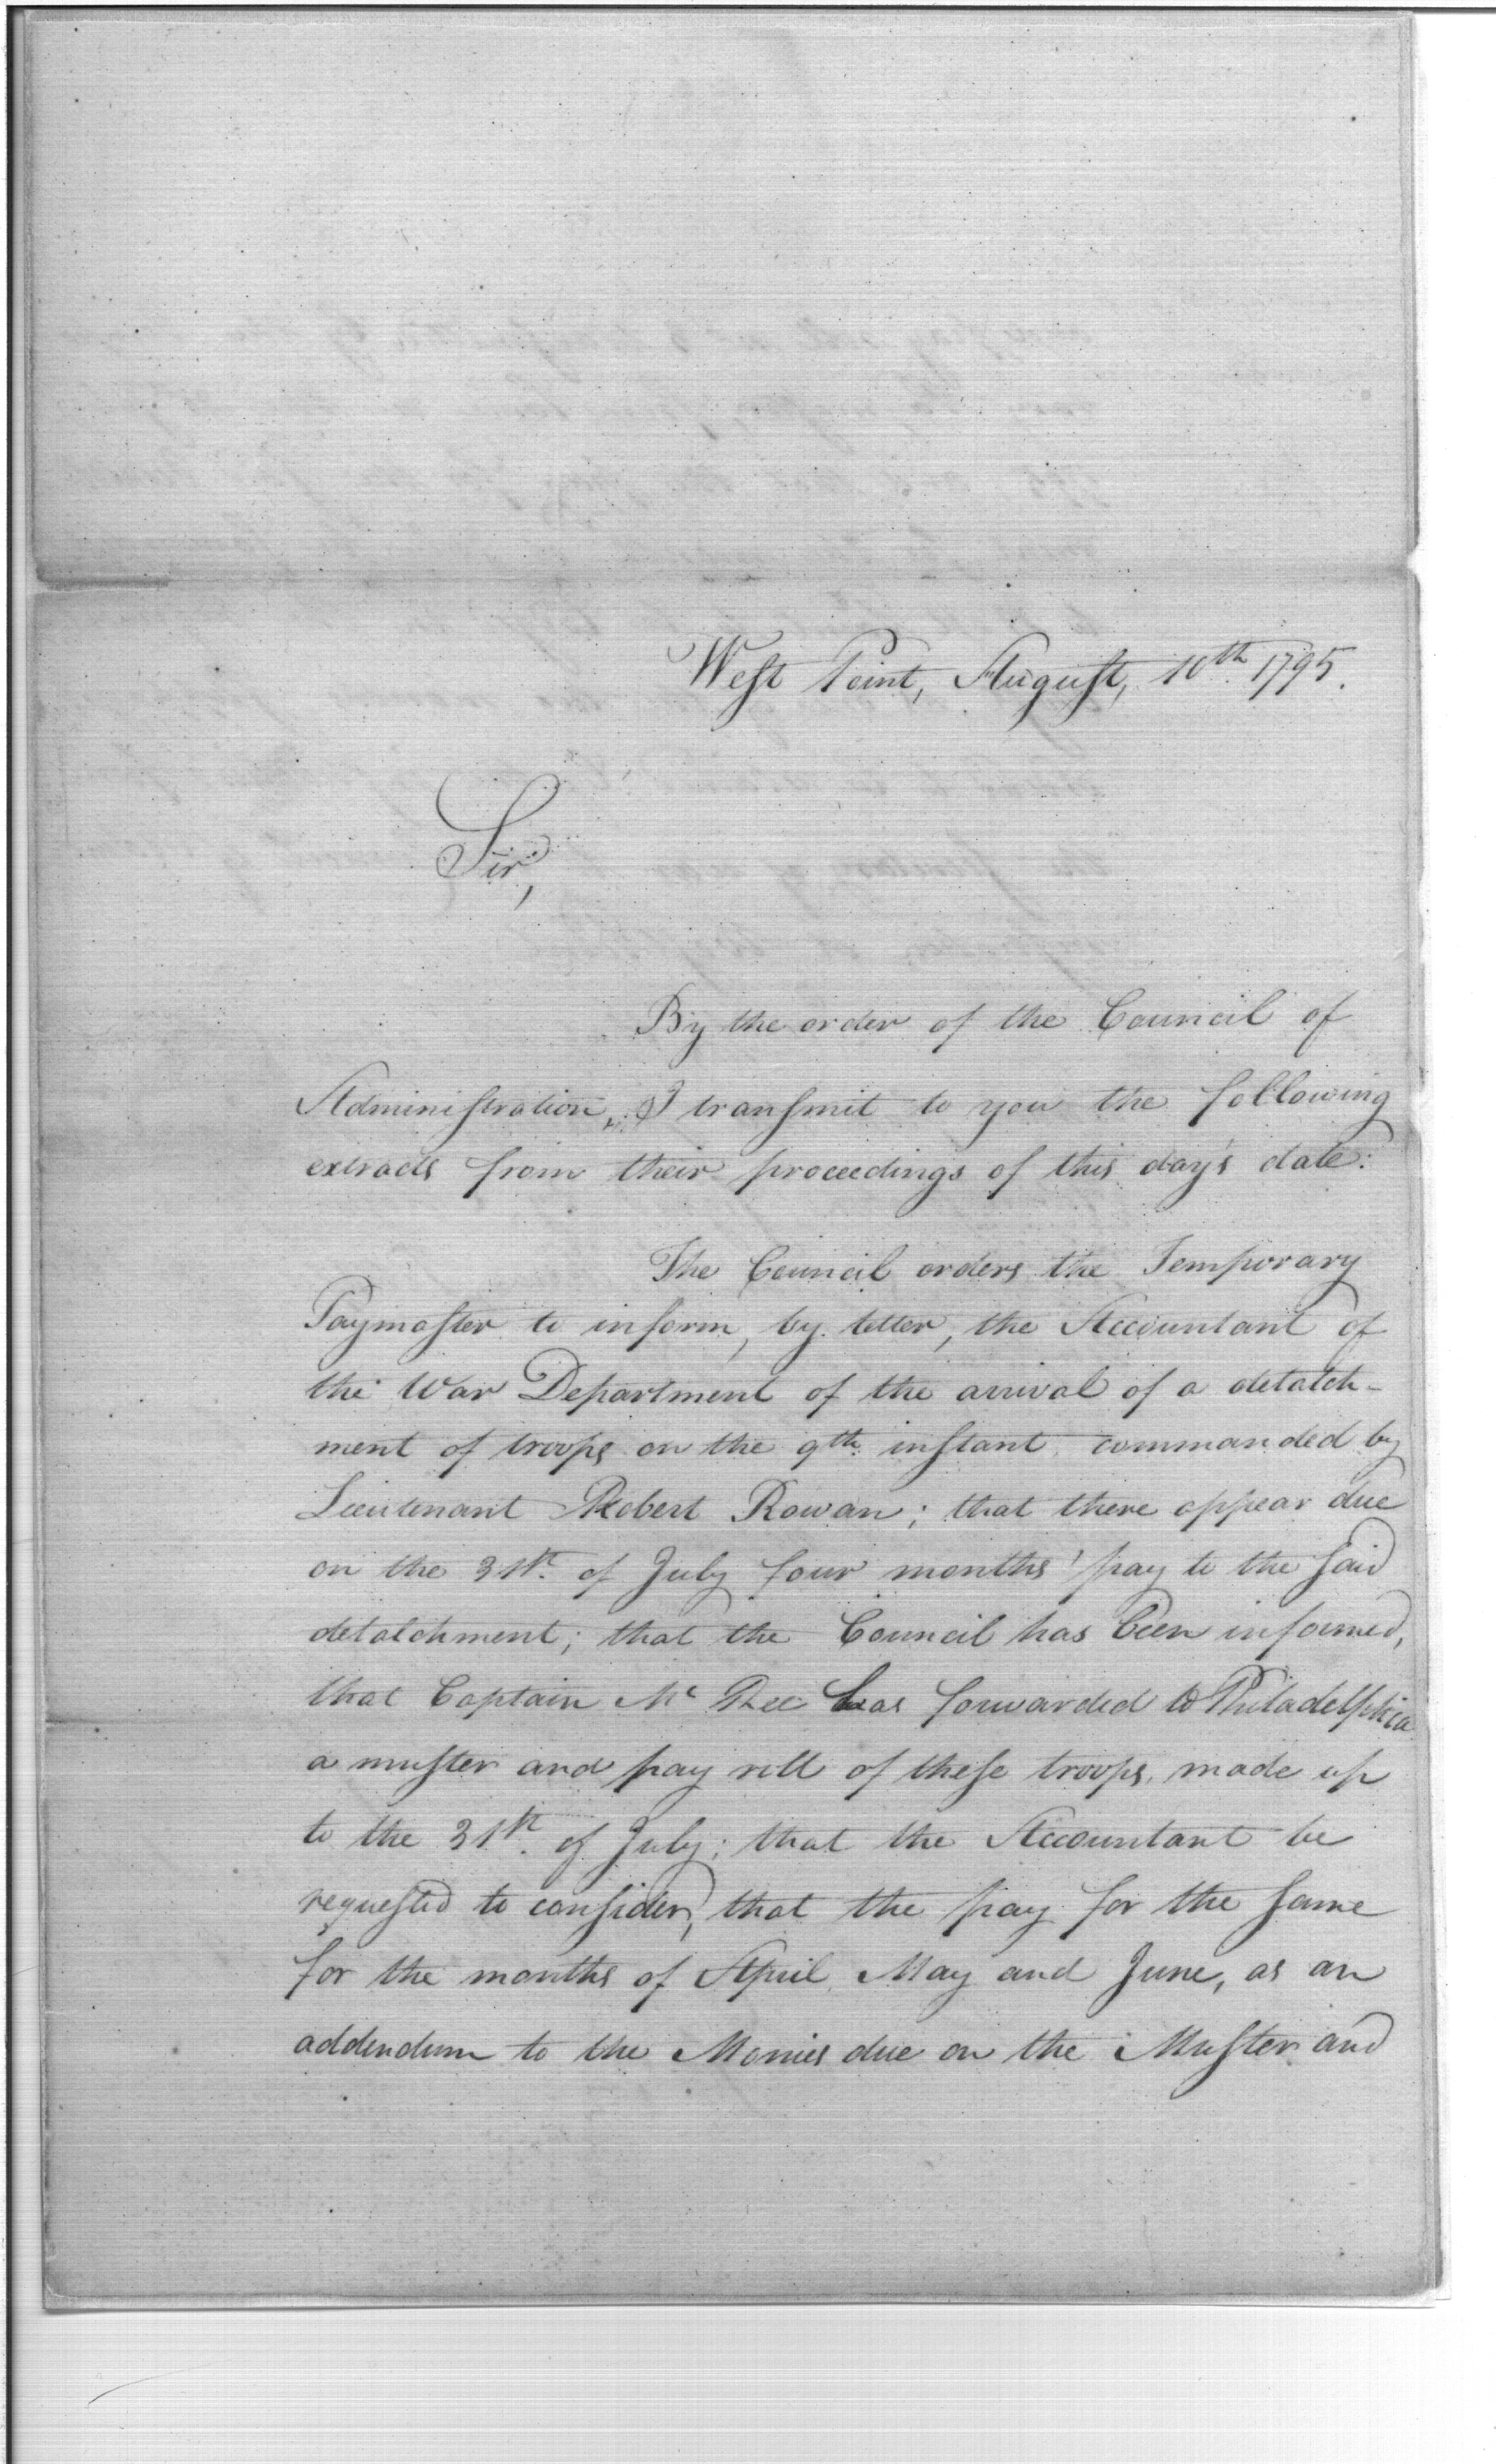 West Point, August, 10th. 1795.
Sir,
By the order of the Council of
Administration, I transmit to you the following
extracts from their proceedings of this day's date:
The Council orders the Temporary
Paymaster to inform, by letter, the Accountant of
the War Department of the arrival of a detatch-
ment of troops on the 9th. instant commanded by
Lieutenant Robert Rowan; that there appear due
on the 31st. of July four months' pay to the said
detatchment; that the Council has been informed,
that Captain Mc Ree has forwarded to Philadelphia
a muster and pay roll of these troops, made up
to the 31st. of July; that the Accountant be
requested to consider, that the pay for the same
for the months of April, May and June, as an
addendum to the Monies due on the Muster and